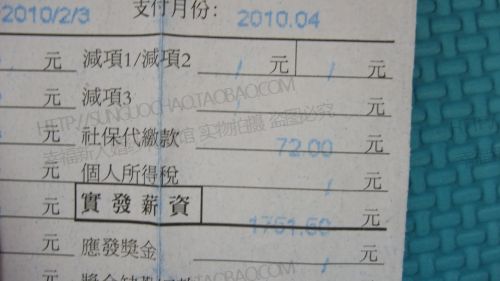 2010/2/3 支付月份: 2010.04
元 減項1/減項2 / 元 / 元
元 減項3 / 元
HTTP://SUNGUOCHAO.TAOBAO.COM
实物拍摄 盗图必究
元 社保代繳款 72.00 元
元 個人所得稅 / 元
元 實發薪資 1751.50 元
元 應發獎金 / 元
元
TAOBAO.COM